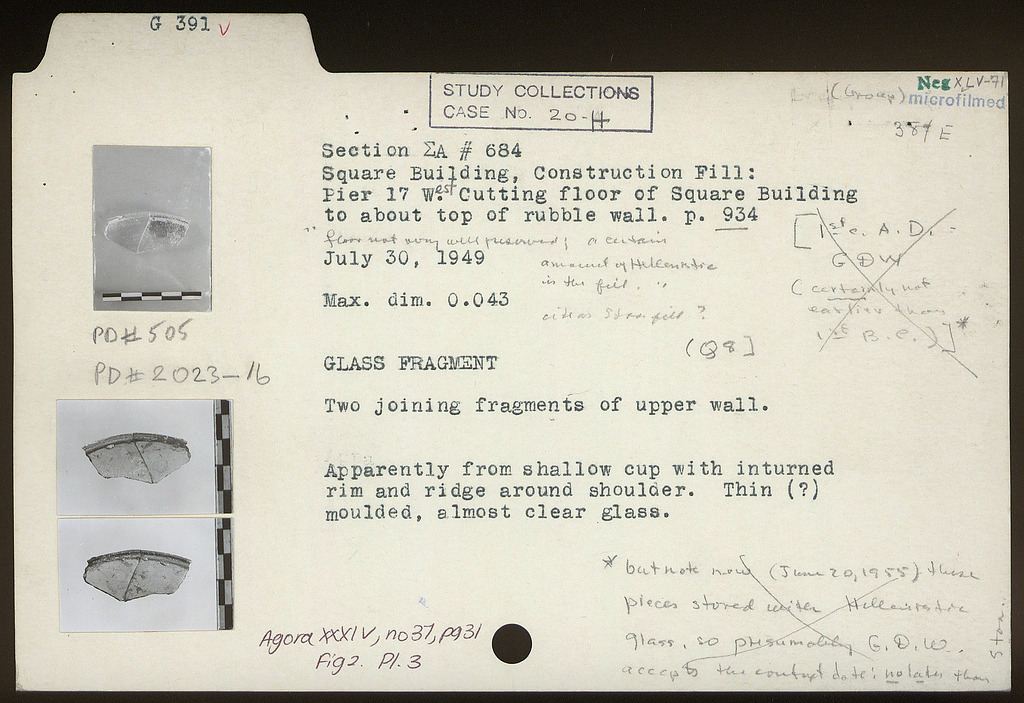 G 391 v
Neg XLV-71
microfilmed
(Group)
387 E
STUDY COLLECTIONS
CASE No. 20-H
Section ΣA # 684
Square Building, Construction Fill:
Pier 17 West Cutting floor of Square Building
to about top of rubble wall. p. 934
" floor not very well preserved; a certain
amount of Hellenistic
in the fill. "
July 30, 1949
Max. dim. 0.043
[1st c. A.D. -
GDW
(certainly not
earlier than
1st B.C.)]*
(Q8]
GLASS FRAGMENT
Two joining fragments of upper wall.
Apparently from shallow cup with inturned
rim and ridge around shoulder. Thin (?)
moulded, almost clear glass.
PD# 505
PD# 2023-16
* but note now (June 20, 1955) these
pieces stored with Hellenistic
glass, so presumably G.D.W.
accepts the context date: no later than
Stoa.
Agora XXXIV, no 37, pg 31
Fig 2. Pl. 3